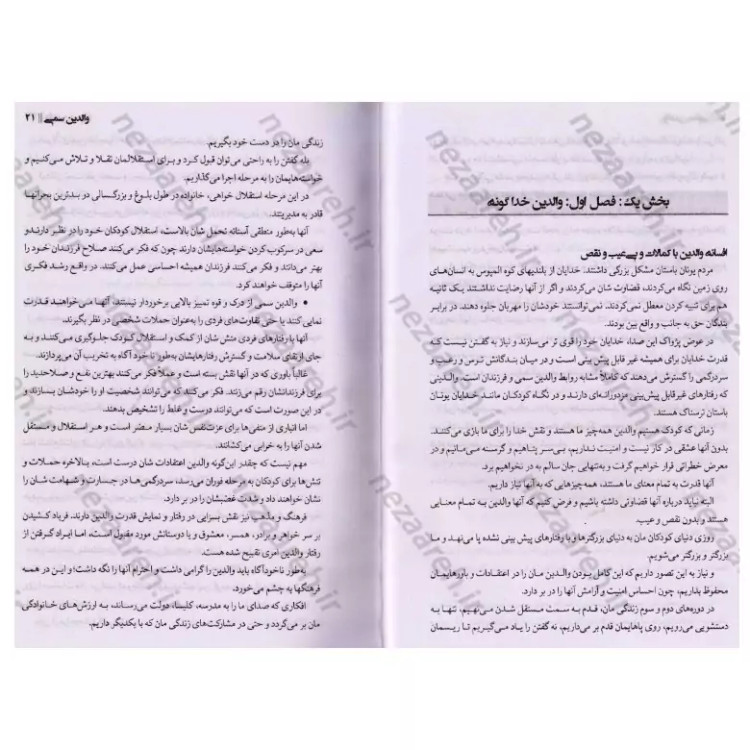 بخش یک: فصل اول: والدین خدا گونه
افسانه والدین با کمالات و بی‌عیب و نقص
مردم یونان باستان مشکل بزرگی داشتند. خدایان از بلندیهای کوه المپوس به انسان‌های
روی زمین نگاه می‌کردند، قضاوت شان می‌کردند و اگر از آنها رضایت نداشتند یک ثانیه
هم برای تنبیه کردن معطل نمی‌کردند. نمی‌توانستند خودشان را مهربان جلوه دهند. در برابر
بندگان حق به جانب و واقع بین بودند.
در عوض پژواک این صدا، خدایان خود را قوی تر می‌سازند و نیاز به گفتن نیست که
قدرت خدایان برای همیشه غیر قابل پیش بینی است و در میان بندگانش ترس و رعب و
سردرگمی را گسترش می‌دهند که کاملاً مشابه روابط والدین سمی و فرزندان است. والدینی
که رفتارهای غیرقابل پیش‌بینی مزدورانه‌ای دارند و در نگاه کودکان مانند خدایان یونان
باستان ترسناک هستند.
زمانی که کودک هستیم والدین همه‌چیز ما هستند و نقش خدا را برای ما بازی می‌کنند.
بدون آنها عشقی در کار نیست و امنیت نداریم، بی‌سر پناهیم و گرسنه می‌مانیم و در
معرض خطراتی قرار خواهیم گرفت و به‌تنهایی جان سالم به در نخواهیم برد.
آنها قدرت به تمام معنای ما هستند، همه‌چیزهایی که به آنها نیاز داریم.
البته نباید درباره آنها قضاوتی داشته باشیم و فرض کنیم که آنها والدین به تمام معنایی
هستند و بدون نقص و عیب.
روزی دنیای کودکان مان به دنیای بزرگترها و با رفتارهای پیش بینی نشده پا می‌نهد و ما
بزرگتر و بزرگتر می‌شویم.
و نیاز به این تصور داریم که این کامل بودن والدین مان را در اعتقادات و باورهایمان
محفوظ بداریم، چون احساس امنیت و آرامش آنها را در بر دارد.
در دوره‌های دوم و سوم زندگی مان، قدم به سمت مستقل شدن می‌نهیم، تنها به
دستشویی می‌رویم، روی پاهایمان قدم بر می‌داریم، نه گفتن را یاد می‌گیریم تا ریسمان
والدین سمی || ۲۱
زندگی مان را در دست خود بگیریم.
بله گفتن را به راحتی می‌توان قبول کرد و برای استقلالمان تقلا و تلاش می‌کنیم و
خواسته‌هایمان را به مرحله اجرا می‌گذاریم.
در این مرحله استقلال خواهی، خانواده در طول بلوغ و بزرگسالی در بدترین بحرانها
قادر به مدیریتند.
آنها به‌طور منطقی آستانه تحمل شان بالاست، استقلال کودکان خود را در نظر دارند و
سعی در سرکوب کردن خواسته‌هایشان دارند چون که فکر می‌کنند صلاح فرزندان خود را
بهتر می‌دانند و فکر می‌کنند فرزندان همیشه احساسی عمل می‌کنند. در واقع رشد فکری
آنها را متوقف خواهند کرد.
• والدین سمی از درک و قوه تمیز بالایی برخوردار نیستند. آنها می‌خواهند قدرت
نمایی کنند یا حتی تفاوت‌های فردی را به‌عنوان حملات شخصی در نظر بگیرند.
آنها با رفتارهای فردی منش شان از کمک و استقلال کودک جلوگیری می‌کنند و به
جای ارتقای سلامت و گسترش رفتارهایشان به‌طور نا خود آگاه به تخریب آن می‌پردازند.
غالباً باوری که در آنها نقش بسته است و عملاً فکر می‌کنند بهترین نفع و صلاحدید را
برای فرزندانشان رقم می‌زنند. فکر می‌کنند که می‌توانند شخصیت او را خودشان بسازند و
در این صورت است که می‌تواند درست و غلط را تشخیص بدهند.
اما انباری از منفی‌ها برای عزت‌نفس شان بسیار مضر است و هر استقلال و مستقل
شدن آنها را به خرابی می‌کشانند.
مهم نیست که چقدر این‌گونه والدین اعتقادات شان درست است، بالاخره حملات و
تنش‌ها برای کودکان به مرحله فوران می‌رسد، سردرگمی‌ها در جسارت و شهامت شان را
نشان خواهند داد و شدت غضبشان را در بر دارد.
فرهنگ و مذهب نیز نقش بسزایی در رفتار و نمایش قدرت والدین دارند. فریاد کشیدن
بر سر خواهر و برادر، همسر، معشوق و یا دوستانش مورد مقبول است، اما ایراد گرفتن از
رفتار والدین امری تقبیح شده هست.
به‌طور ناخودآگاه باید والدین را گرامی داشت و احترام آنها را نگه داشت؛ و این در همه
فرهنگها به چشم می‌خورد.
افکاری که صدای ما را به مدرسه، کلیسا، دولت می‌رساند، به ارزش‌های خانوادگی
مان بر می‌گردد و حتی در مشارکت‌های زندگی مان که با یکدیگر داریم.
nezaareh.ir